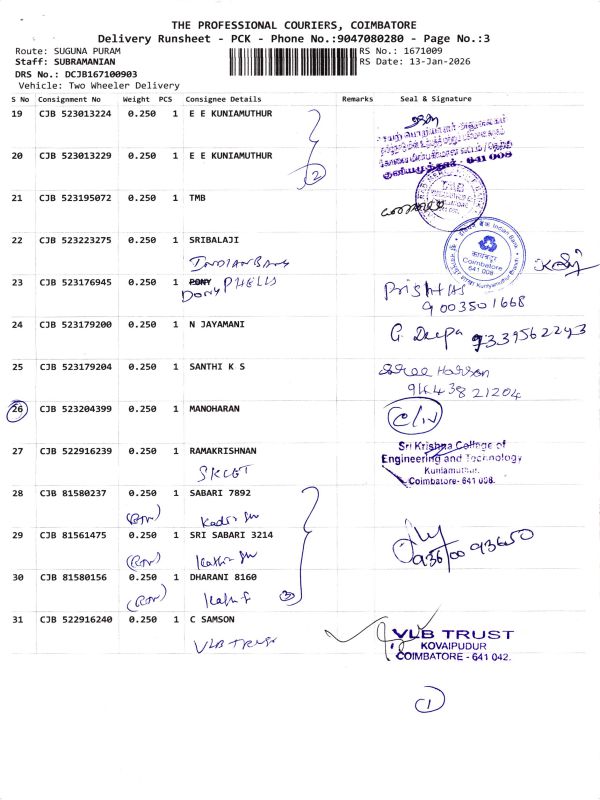 THE PROFESSIONAL COURIERS, COIMBATORE
Delivery Runsheet - PCK - Phone No.:9047080280 - Page No.:3
Route: SUGUNA PURAM
RS No.: 1671009
Staff: SUBRAMANIAN
RS Date: 13-Jan-2026
DRS No.: DCJB167100903
Vehicle: Two Wheeler Delivery
S No Consignment No Weight PCS Consignee Details Remarks Seal & Signature
19 CJB 523013224 0.250 1 E E KUNIAMUTHUR
20 CJB 523013229 0.250 1 E E KUNIAMUTHUR
641 008
2
21 CJB 523195072 0.250 1 TMB
22 CJB 523223275 0.250 1 SRIBALAJI
INDIAN BANK
Indian Bank
Coimbatore
641 008
Kuniyamuthur Branch
23 CJB 523176945 0.250 1 PONY PHELLS
DONY
9003501668
24 CJB 523179200 0.250 1 N JAYAMANI
G. Deepa 9339562293
25 CJB 523179204 0.250 1 SANTHI K S
26 CJB 523204399 0.250 1 MANOHARAN
27 CJB 522916239 0.250 1 RAMAKRISHNAN
SKCET
Sri Krishna College of
Engineering and Technology
Kuniamuthur.
Coimbatore- 641 008.
28 CJB 81580237 0.250 1 SABARI 7892
29 CJB 81561475 0.250 1 SRI SABARI 3214
93600 93650
30 CJB 81580156 0.250 1 DHARANI 8160
3
31 CJB 522916240 0.250 1 C SAMSON
VLB TRUST
VLB TRUST
KOVAIPUDUR
COIMBATORE - 641 042.
1